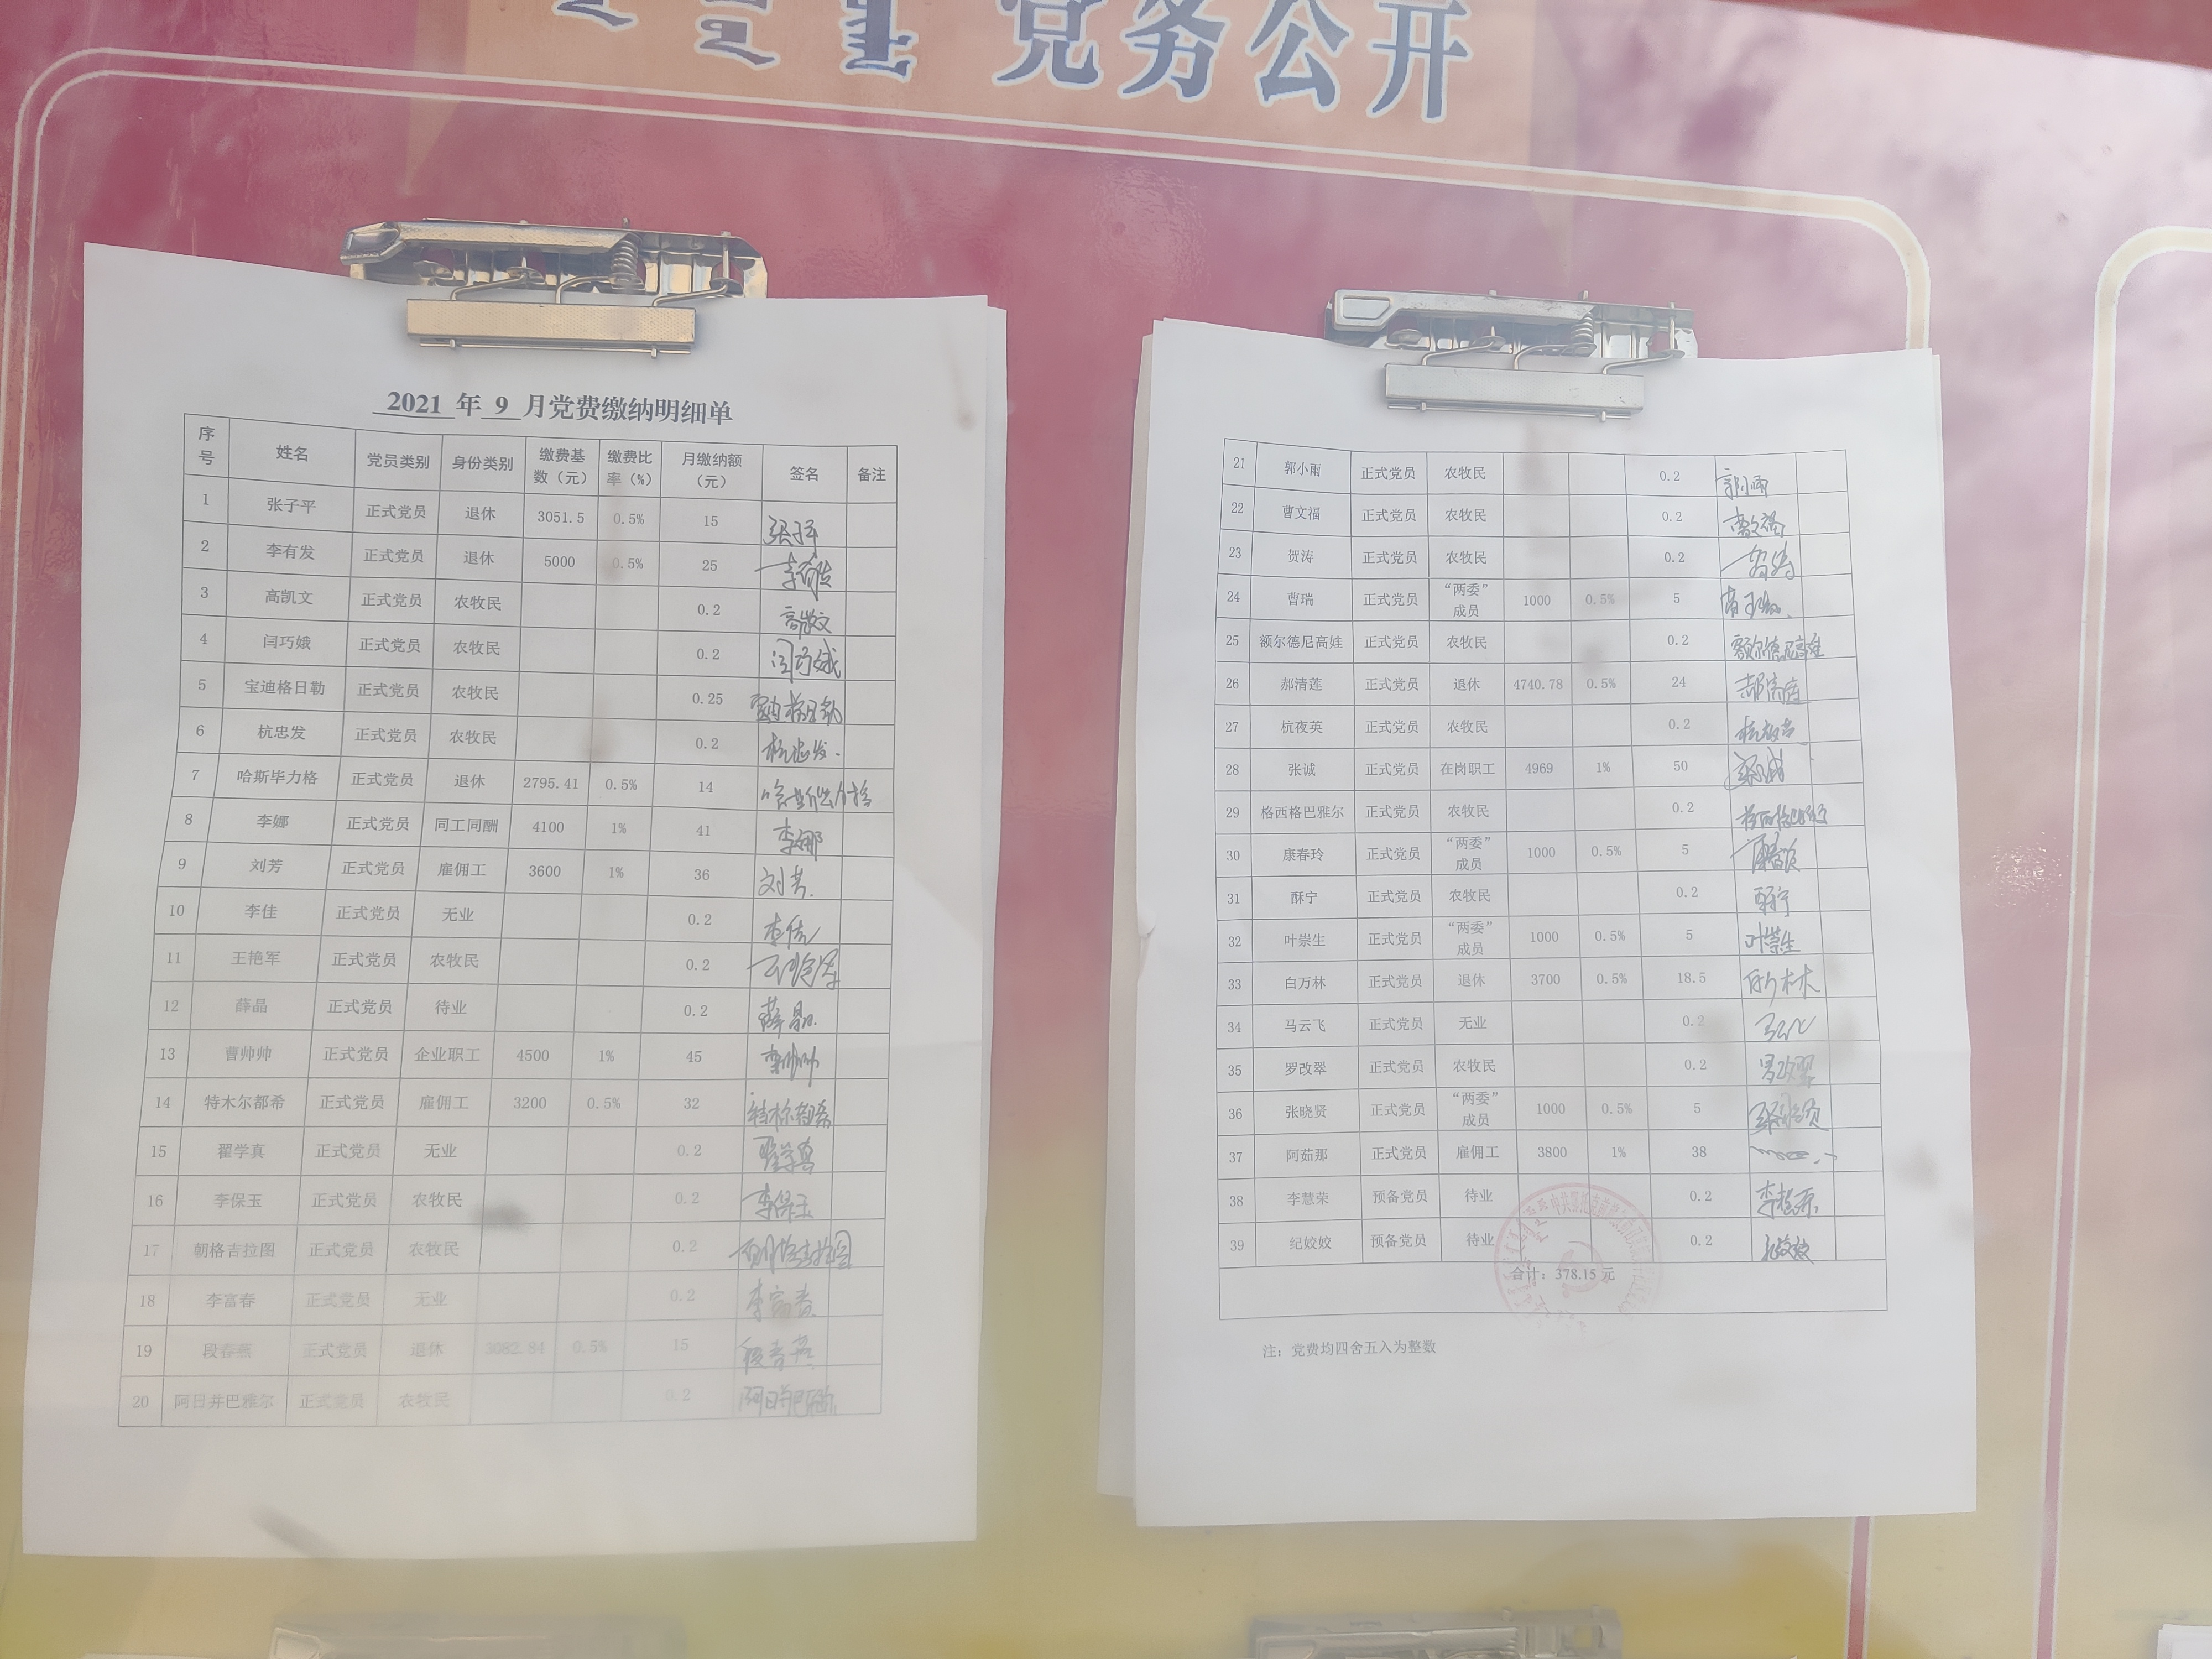 党务公开
2021 年 9 月党费缴纳明细单
序号 姓名 党员类别 身份类别 缴费基数（元） 缴费比率（%） 月缴纳额（元） 签名 备注
1 张子平 正式党员 退休 3051.5 0.5% 15 张子平
2 李有发 正式党员 退休 5000 0.5% 25 李有发
3 高凯文 正式党员 农牧民 0.2 高凯文
4 闫巧娥 正式党员 农牧民 0.2 闫巧娥
5 宝迪格日勒 正式党员 农牧民 0.25
6 杭忠发 正式党员 农牧民 0.2 杭忠发
7 哈斯毕力格 正式党员 退休 2795.41 0.5% 14 哈斯毕力格
8 李娜 正式党员 同工同酬 4100 1% 41 李娜
9 刘芳 正式党员 雇佣工 3600 1% 36 刘芳
10 李佳 正式党员 无业 0.2 李佳
11 王艳军 正式党员 农牧民 0.2
12 薛晶 正式党员 待业 0.2 薛晶
13 曹帅帅 正式党员 企业职工 4500 1% 45 曹帅帅
14 特木尔都希 正式党员 雇佣工 3200 0.5% 32
15 翟学真 正式党员 无业 0.2 翟学真
16 李保玉 正式党员 农牧民 0.2 李保玉
17 朝格吉拉图 正式党员 农牧民 0.2 朝格吉拉图
18 李富春 正式党员 无业 0.2 李富春
19 段春燕 正式党员 退休 3082.84 0.5% 15 段春燕
20 阿日并巴雅尔 正式党员 农牧民 0.2
21 郭小雨 正式党员 农牧民 0.2 郭小雨
22 曹文福 正式党员 农牧民 0.2 曹文福
23 贺涛 正式党员 农牧民 0.2 贺涛
24 曹瑞 正式党员 “两委”成员 1000 0.5% 5
25 额尔德尼高娃 正式党员 农牧民 0.2 额尔德尼高娃
26 郝清莲 正式党员 退休 4740.78 0.5% 24 郝清莲
27 杭夜英 正式党员 农牧民 0.2
28 张诚 正式党员 在岗职工 4969 1% 50 张诚
29 格西格巴雅尔 正式党员 农牧民 0.2
30 康春玲 正式党员 “两委”成员 1000 0.5% 5
31 酥宁 正式党员 农牧民 0.2
32 叶崇生 正式党员 “两委”成员 1000 0.5% 5 叶崇生
33 白万林 正式党员 退休 3700 0.5% 18.5 白万林
34 马云飞 正式党员 无业 0.2 马云飞
35 罗改翠 正式党员 农牧民 0.2 罗改翠
36 张晓贤 正式党员 “两委”成员 1000 0.5% 5 张晓贤
37 阿茹那 正式党员 雇佣工 3800 1% 38
38 李慧荣 预备党员 待业 0.2 李慧荣
39 纪姣姣 预备党员 待业 0.2 纪姣姣
合计：378.15 元
注：党费均四舍五入为整数